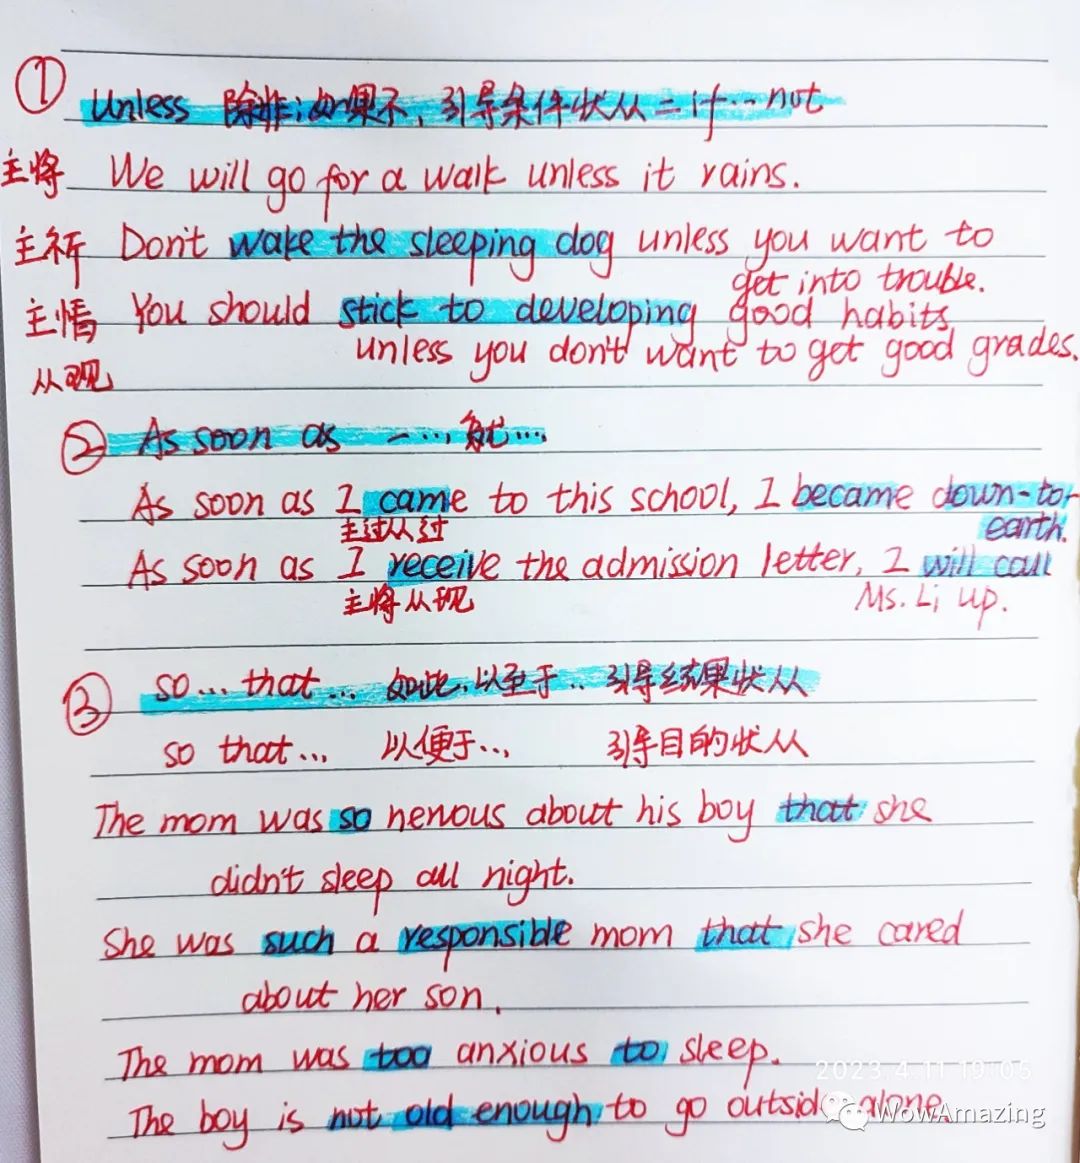 ① Unless 除非;如果不,引导条件状从=if...not
主将 We will go for a walk unless it rains.
主祈 Don't wake the sleeping dog unless you want to
get into trouble.
主情 You should stick to developing good habits
从现 unless you don't want to get good grades.
② As soon as 一...,就...
As soon as I came to this school, I became down-to-
earth.
主过从过
As soon as I receive the admission letter, I will call
主将从现 Ms. Li up.
③ so...that... 如此..以至于.. 引导结果状从
so that... 以便于... 引导目的状从
The mom was so nervous about his boy that she
didn't sleep all night.
She was such a responsible mom that she cared
about her son.
The mom was too anxious to sleep.
2023.4.11 19:05
The boy is not old enough to go outside alone.
WowAmazing